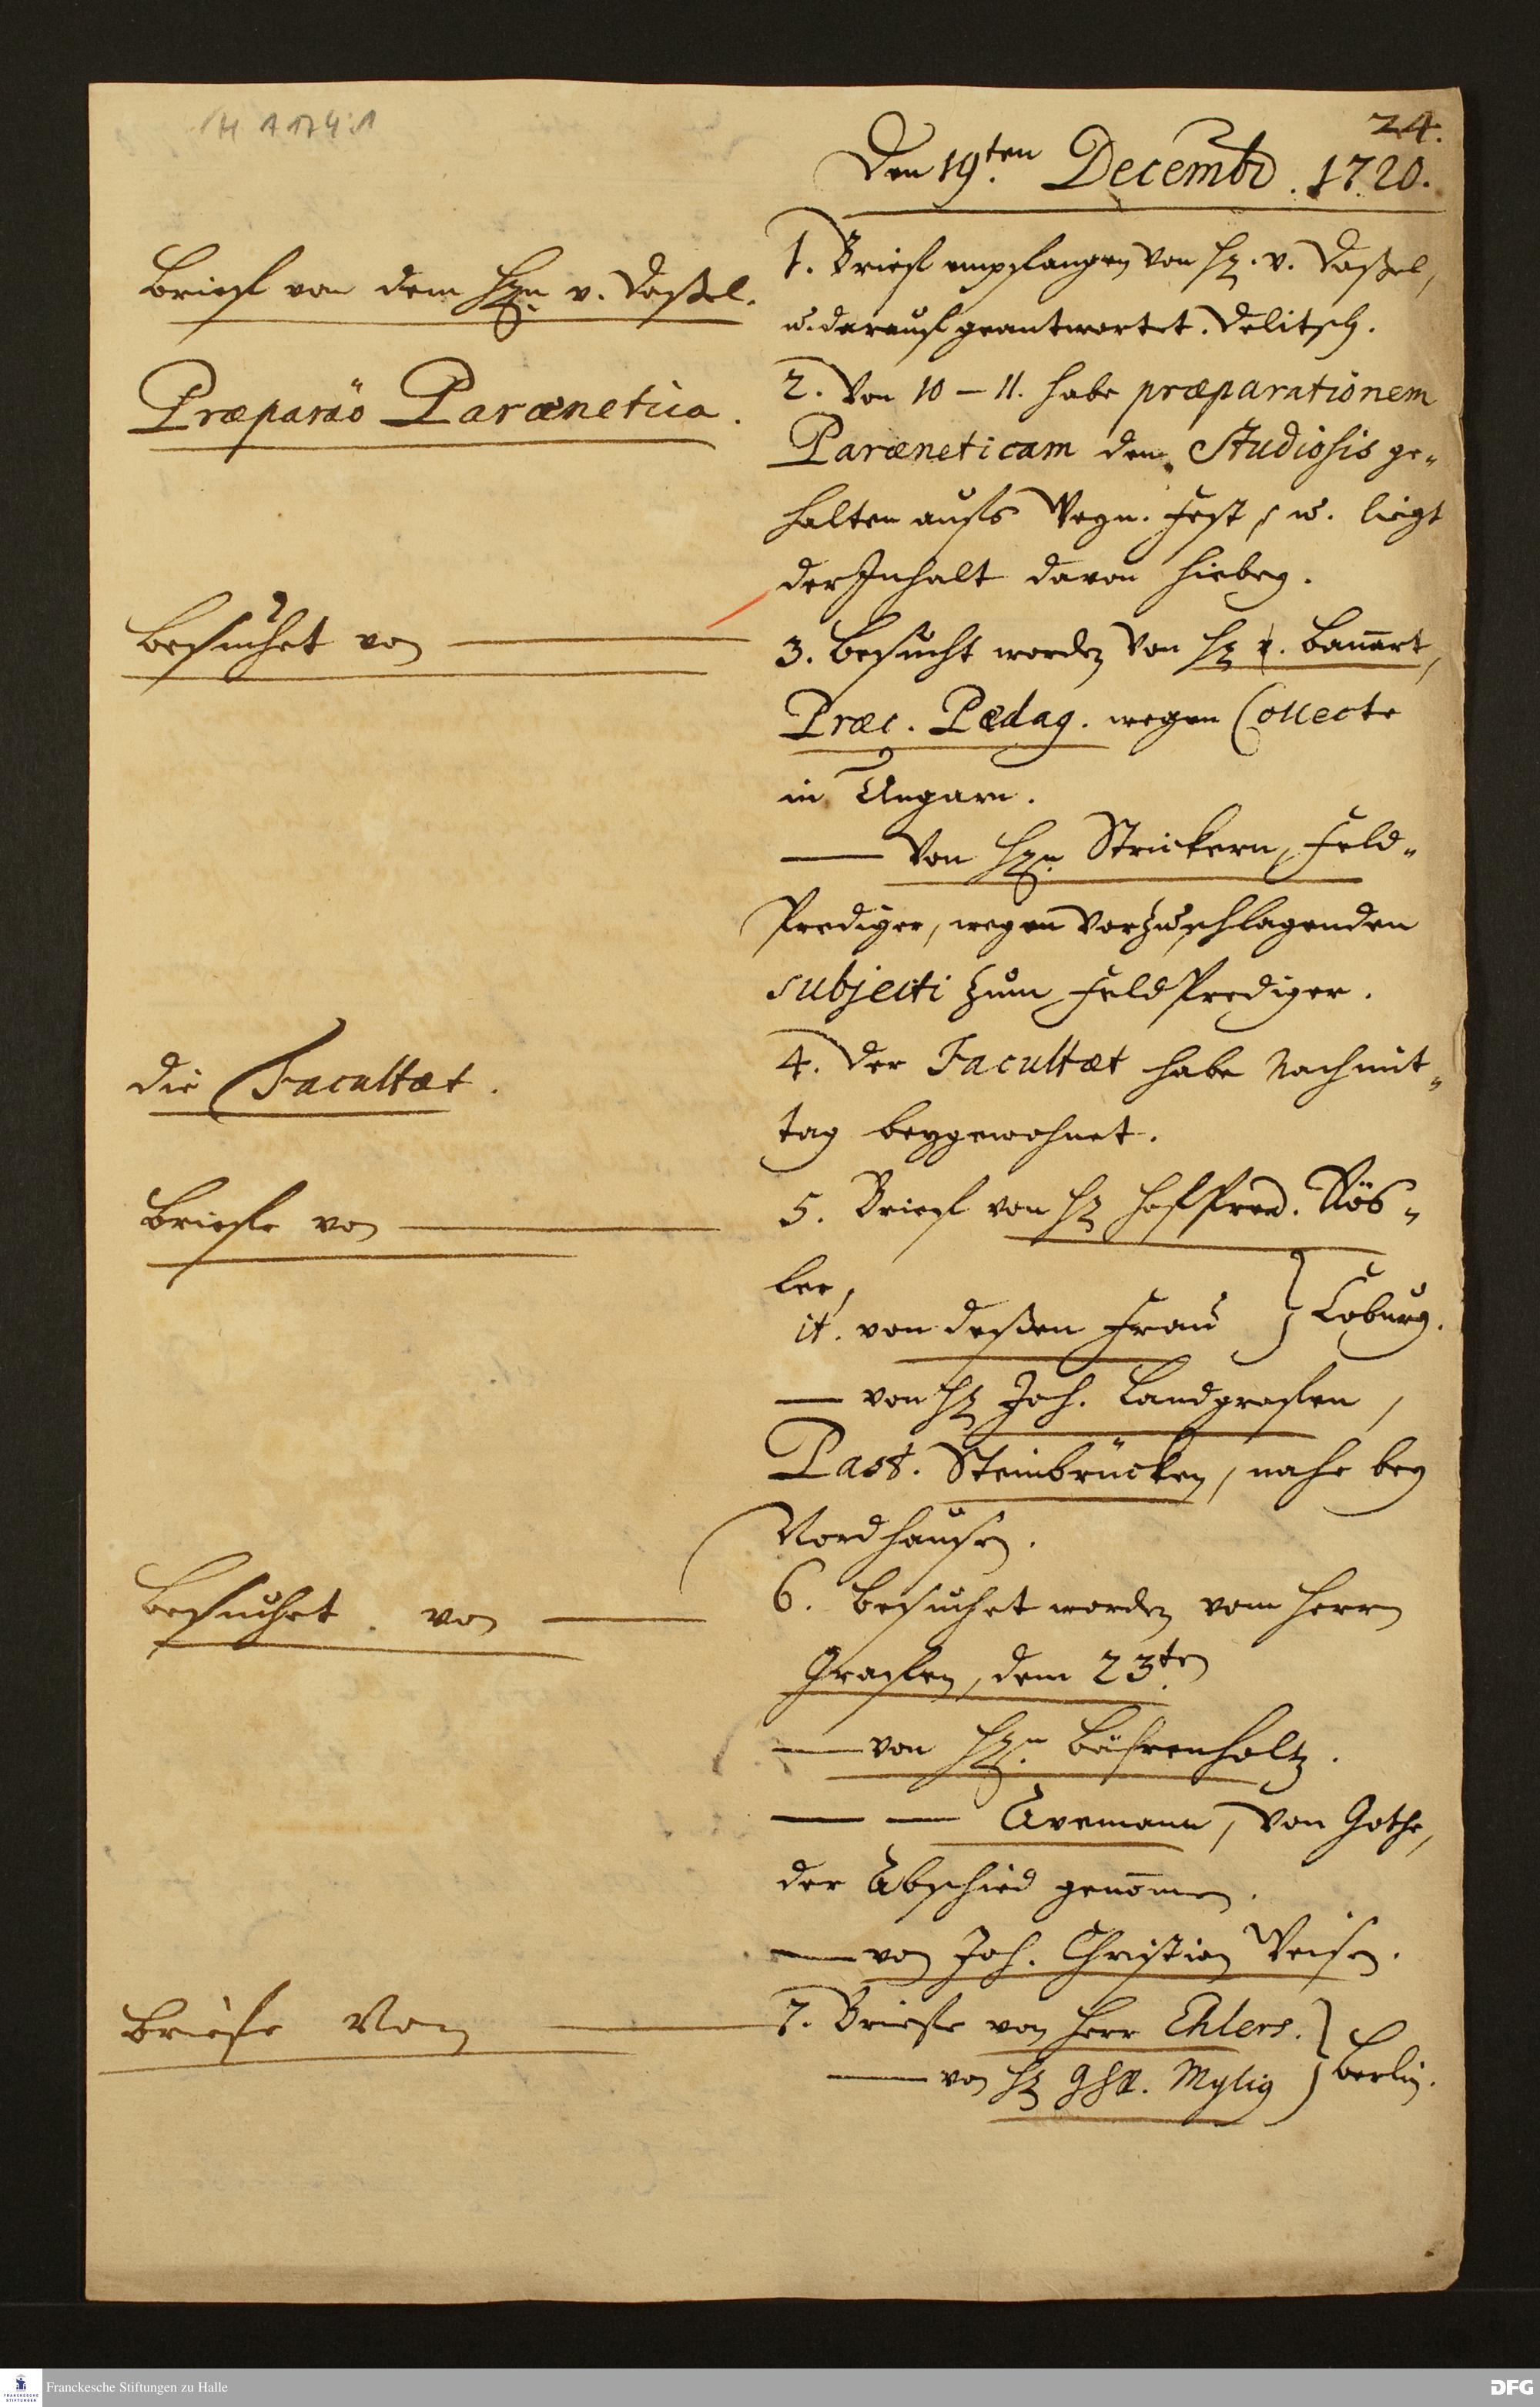 24.
Den 19.ten Decembr. 1720.
Brieff von dem Hrn. v. Daßel.
1. Brieff empfangen von H. v. Daßel,
u. darauff geantwortet. Delitsch.
Præparāo Parænetica.
2. Von 10 – 11. habe præparationem
Paræneticam den Studiosis ge-
halten auffs Weyn. Fest, u. liegt
der Inhalt davon hiebey.
Besuchet von —
3. Besucht worden von H. Bañart,
Præc. Pædag. wegen Collecte
in Ungarn.
— Von Hrn. Strickern, Feld-
Prediger, wegen vorzuschlagenden
subjecti zum FeldPrediger.
die Facultæt.
4. Der Facultæt habe Nachmit-
tag beygewohnet.
Brieffe von —
5. Brieff von H. HoffPred. Rös-
ler,
it. von deßen Frau } Coburg.
— von H. Joh. Landgraffen,
Past. Steinbrücken, nahe bey
Nordhausen.
Besuchet von —
6. Besuchet worden vom Herrn
Graffen, dem 23.ten
— von Hrn. Bährenholtz.
— — Avemann, von Gotha,
der Abschied genom̄en.
— von Joh. Christian Weisen.
Brieffe Von —
7. Brieffe von Herr Ehlers. } Berlin.
— von H. Mylig
Franckesche Stiftungen zu Halle
DFG